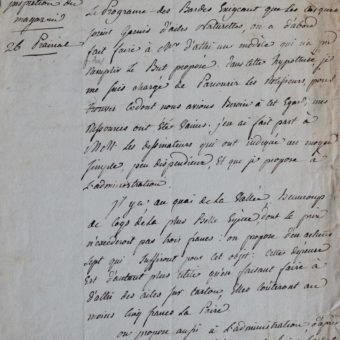 proposition du
magasin
26 Prairial
Le Programe des Bardes Exigeant que les casques
soient garnis d'ailes Naturelles, on a d'abord
fait faire à Mr d'allié un modèle qui n'a pu
remplir le But proposé. Dans cette hypothèse, je
me suis chargé de Parcourir les plumassiers, pour
trouver ce dont nous avions Besoin à cet Egard, mes
démarches ont été vaines. j'en ai fait part à
MM. les dessinateurs qui ont indiqué un moyen
simple, peu dispendieux Et que je propose à
L'administration.
Il y a au quai de la Vallée Beaucoup
de Coqs de la plus Belle Espèce, dont le prix
n'excederoit pas trois francs : on propose d'en acheter
sept qui suffiront pour cet objet : cette dépense
Est d'autant plus utile qu'en faisant faire à
d'allié des ailes sur carton, Elles couteront au
moins cinq francs la Paire.
on propose aussi à L'administration d'après